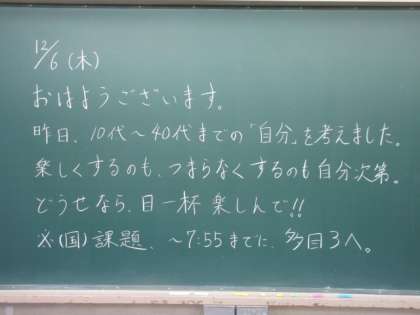 12/6(木)
おはようございます。
昨日、10代～40代までの「自分」を考えました。
楽しくするのも、つまらなくするのも自分次第。
どうせなら、目一杯楽しんで!!
※(国)課題、～7:55までに、多目3へ。